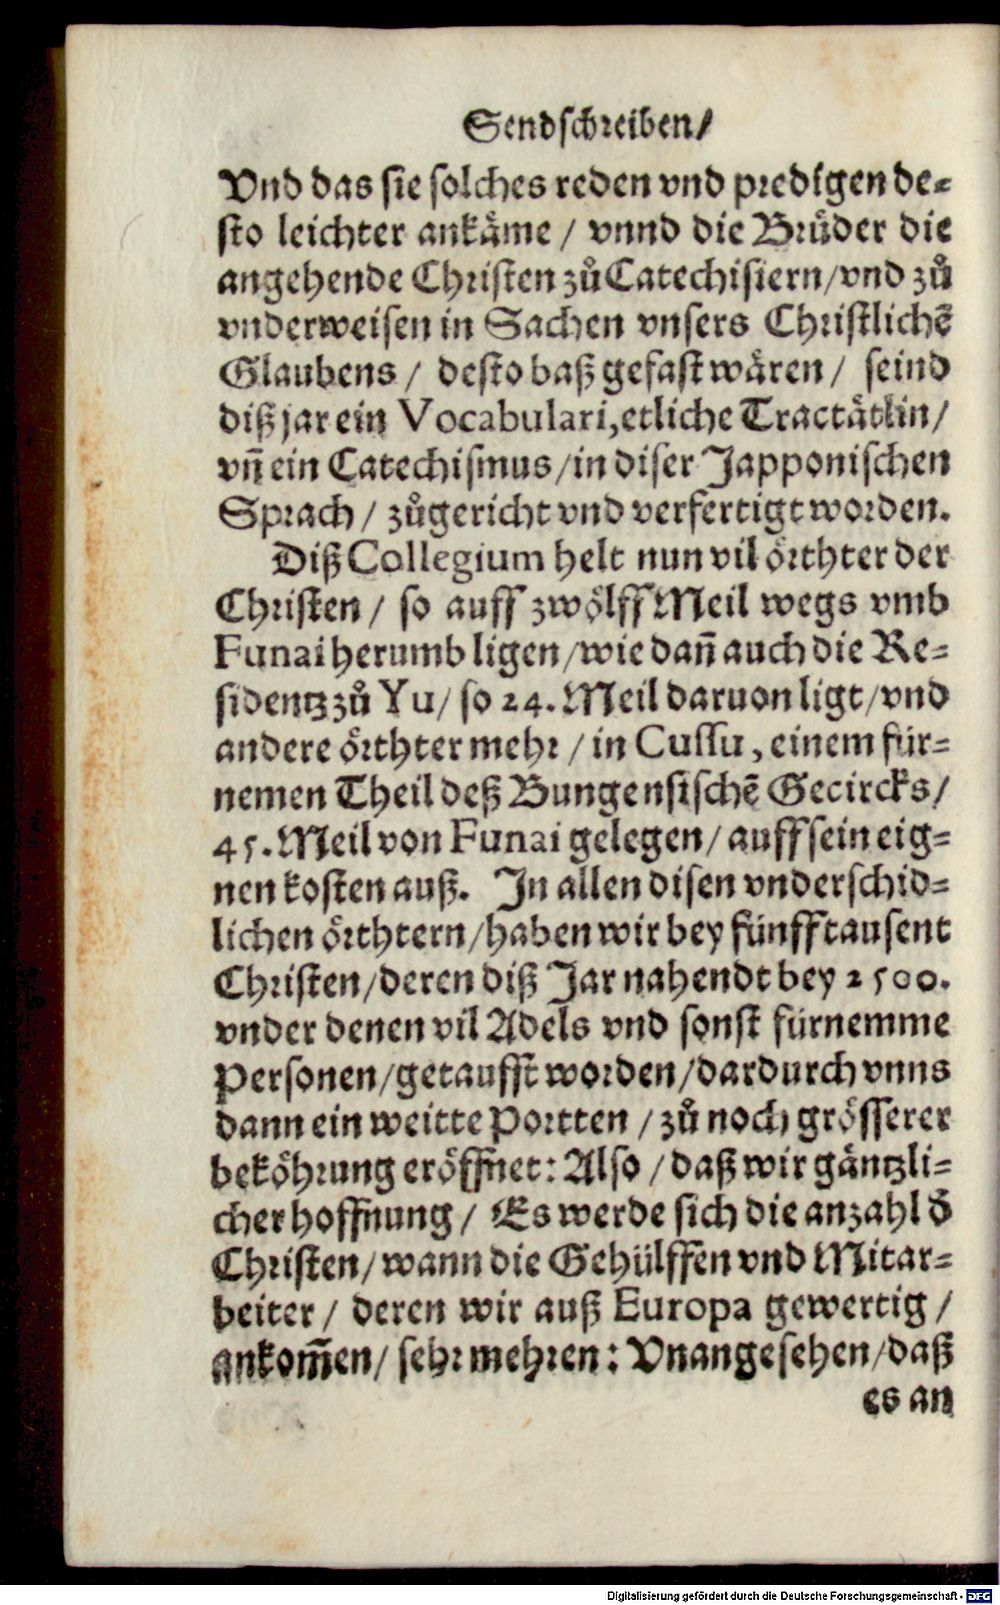 Sendschreiben/
Vnd das sie solches reden vnd predigen de=
sto leichter ankäme / vnnd die Brůder die
angehende Christen zů Catechisiern/vnd zů
vnderweisen in Sachen vnsers Christlichē
Glaubens / desto baß gefast wären / seind
diß jar ein Vocabulari, etliche Tractätlin/
vñ ein Catechismus/in diser Japponischen
Sprach / zůgericht vnd verfertigt worden.
Diß Collegium helt nun vil örthter der
Christen / so auff zwölff Meil wegs vmb
Funai herumb ligen/wie dañ auch die Re=
sidentz zů Yu/ so 24. Meil daruon ligt/vnd
andere örthter mehr / in Cussu, einem für=
nemen Theil deß Bungensischē Gecircks/
45. Meil von Funai gelegen/ auff sein eig=
nen kosten auß. In allen disen vnderschid=
lichen örthtern/haben wir bey fünfftausent
Christen/deren diß Jar nahendt bey 2500.
vnder denen vil Adels vnd sonst fürnemme
Personen/getaufft worden/dardurch vnns
dann ein weitte Portten / zů noch grösserer
beköhrung eröffnet: Also / daß wir gäntzli=
cher hoffnung / Es werde sich die anzahl d̄
Christen/wann die Gehülffen vnd Mitar=
beiter / deren wir auß Europa gewertig /
ankom̄en/ sehr mehren: Vnangesehen/daß
es an
Digitalisierung gefördert durch die Deutsche Forschungsgemeinschaft - DFG